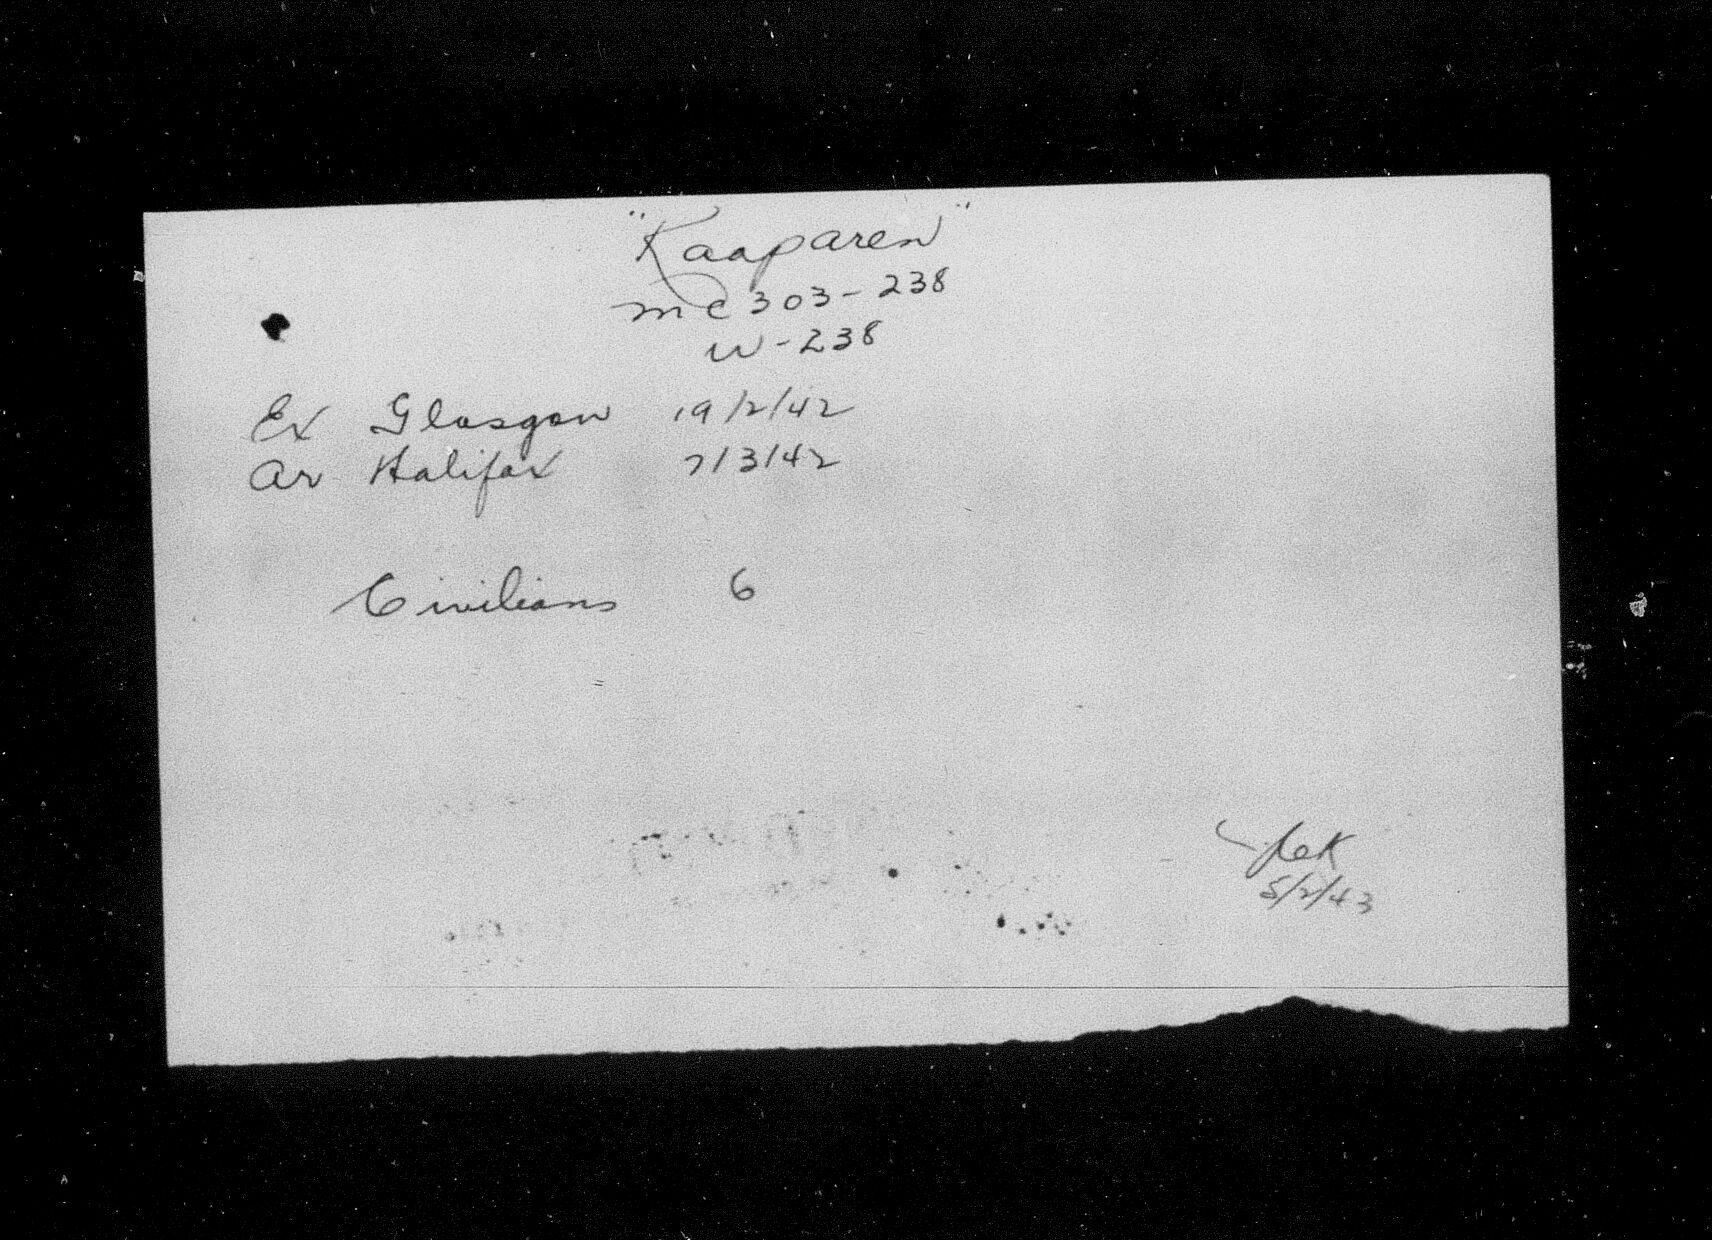 "Kaaparen"
mc 303-238
W-238
Ex Glasgow 19/2/42
Ar Halifax 7/3/42
Civilians 6
5/2/43